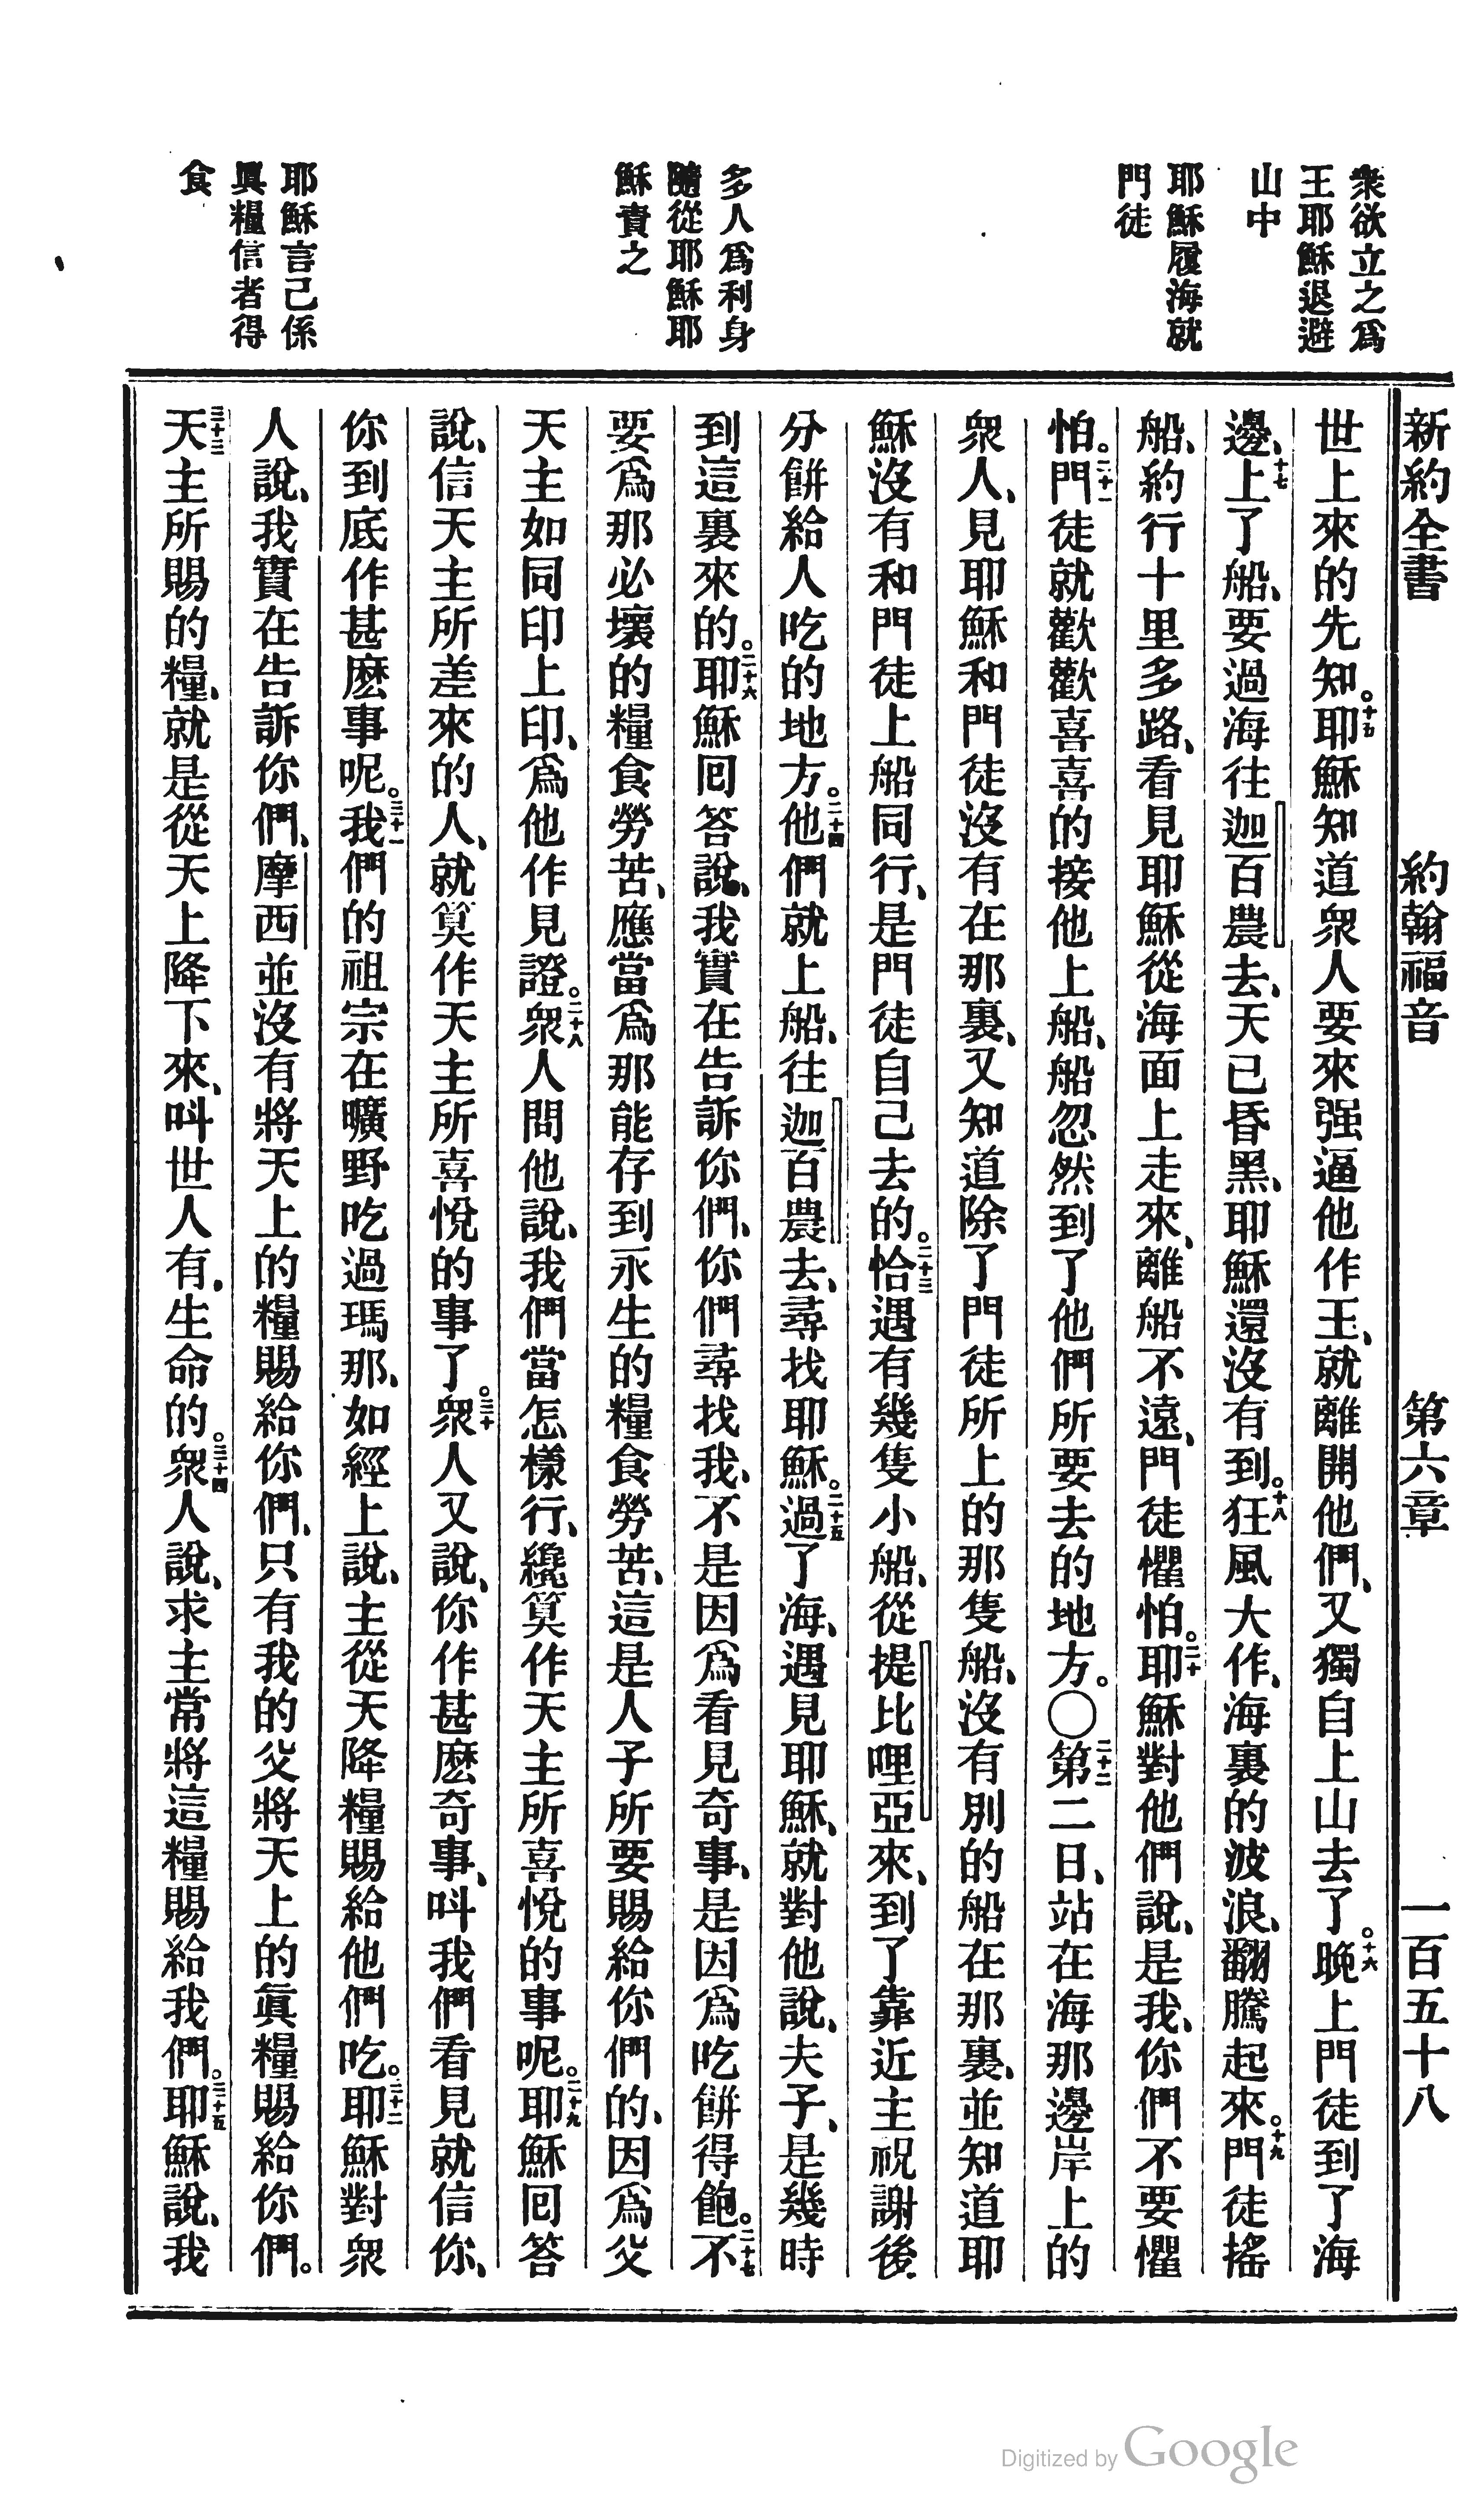 新約全書　約翰福音　第六章　一百五十八
衆欲立之爲
王耶穌退避
山中
耶穌履海就
門徒
多人爲利身
隨從耶穌耶
穌責之
耶穌言己係
眞糧信者得
食
世上來的先知。十五耶穌知道衆人要來强逼他作王、就離開他們、又獨自上山去了。十六晚上門徒到了海
邊、十七上了船、要過海往迦百農去、天已昏黑、耶穌還沒有到。十八狂風大作、海裏的波浪、翻騰起來。十九門徒搖
船、約行十里多路、看見耶穌從海面上走來、離船不遠、門徒懼怕。二十耶穌對他們說、是我、你們不要懼
怕。二十一門徒就歡歡喜喜的接他上船、船忽然到了他們所要去的地方。〇二十二第二日、站在海那邊岸上的
衆人、見耶穌和門徒沒有在那裏、又知道除了門徒所上的那隻船、沒有別的船在那裏、並知道耶
穌沒有和門徒上船同行、是門徒自己去的。二十三恰遇有幾隻小船、從提比哩亞來、到了靠近主祝謝後
分餅給人吃的地方。二十四他們就上船、往迦百農去、尋找耶穌。二十五過了海、遇見耶穌、就對他說、夫子、是幾時
到這裏來的。二十六耶穌回答說、我實在告訴你們、你們尋找我、不是因爲看見奇事、是因爲吃餅得飽。二十七不
要爲那必壞的糧食勞苦、應當爲那能存到永生的糧食勞苦、這是人子所要賜給你們的、因爲父
天主如同印上印、爲他作見證。二十八衆人問他說、我們當怎樣行、纔算作天主所喜悅的事呢。二十九耶穌回答
說、信天主所差來的人、就算作天主所喜悅的事了。三十衆人又說、你作甚麽奇事、呌我們看見就信你、
你到底作甚麽事呢。三十一我們的祖宗在曠野吃過瑪那、如經上說、主從天降糧賜給他們吃。三十二耶穌對衆
人說、我實在告訴你們、摩西並沒有將天上的糧賜給你們、只有我的父將天上的眞糧賜給你們。
三十三天主所賜的糧、就是從天上降下來、呌世人有生命的。三十四衆人說、求主常將這糧賜給我們。三十五耶穌說、我
Digitized by Google